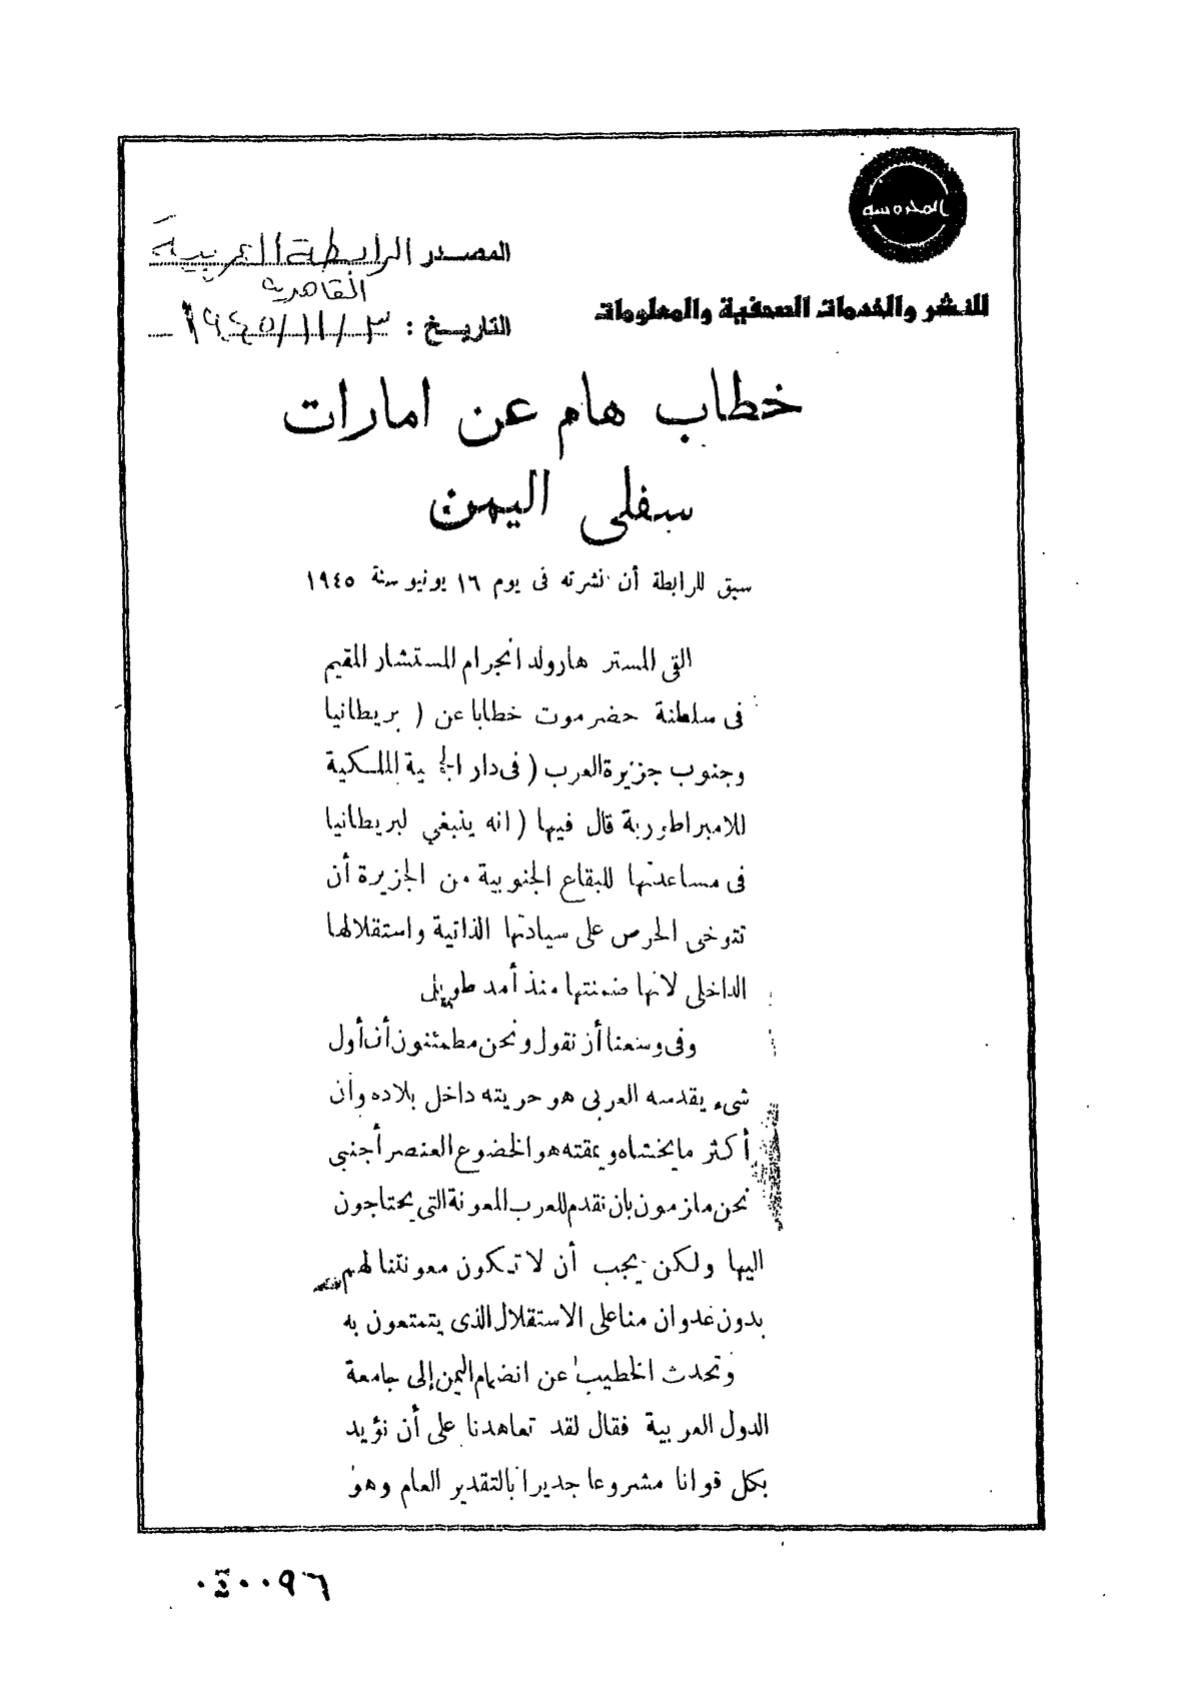 المحروسة
المصدر الرابطة العربية
القاهرية
للنشر والخدمات الصحفية والمعلومات
التاريخ : ٣/١١/١٩٤٥
خطاب هام عن امارات
سفلى اليمن
سبق للرابطة أن نشرته فى يوم ١٦ يونيو سنة ١٩٤٥
القى المستر هارولد انجرام المستشار المقيم
فى سلطنة حضرموت خطابا عن ( بريطانيا
وجنوب جزيرة العرب ( فى دار الملكية
للامبراطورية قال فيها ( انه ينبغي لبريطانيا
فى مساعدتها للبقاع الجنوبية من الجزيرة أن
تتوخى الحرص على سيادتها الذاتية واستقلالها
الداخلى لانها ضمنتها منذ أمد طويل
وفى وسعنا أن نقول ونحن مطمئنون أن أول
شىء يقدسه العربى هو حريته داخل بلاده وأن
أكثر ما يخشاه ويمقته هو الخضوع العنصر أجنبى
نحن ملزمون بان نقدم للعرب المعونة التى يحتاجون
اليها ولكن يجب أن لا تكون معونتنا لهم
بدون عدوان منا على الاستقلال الذى يتمتعون به
وتحدث الخطيب عن انضمام اليمن إلى جامعة
الدول العربية فقال لقد تعاهدنا على أن نؤيد
بكل قوانا مشروعا جديرا بالتقدير العام وهو